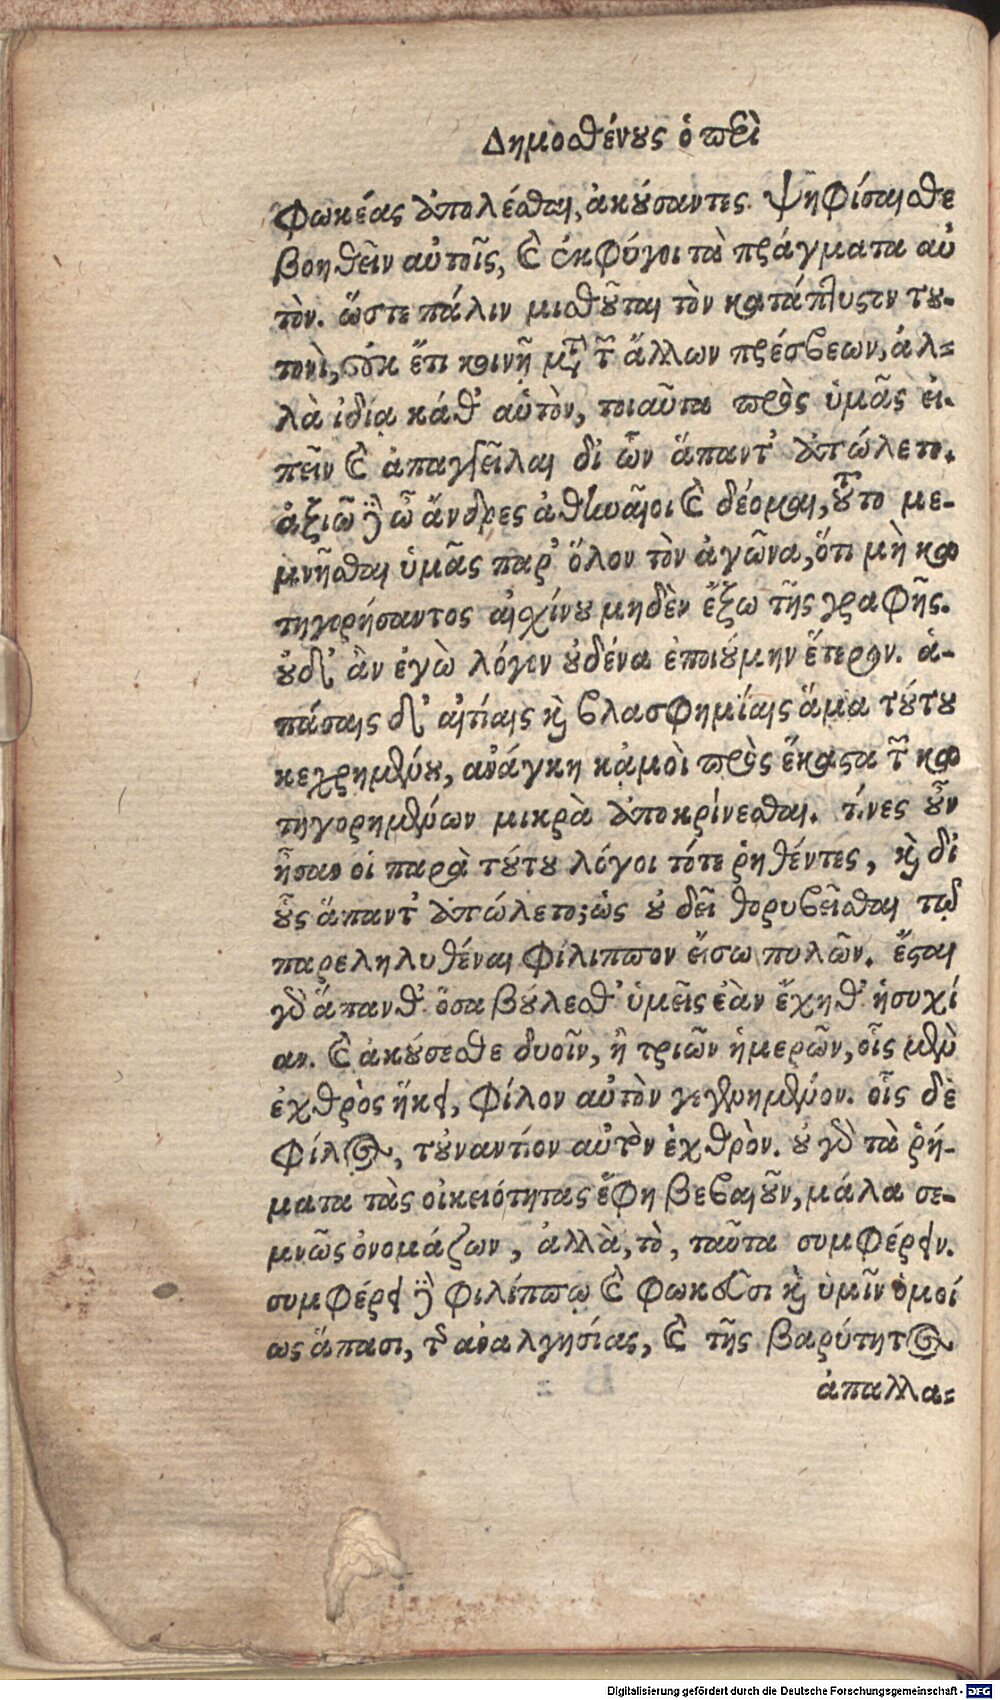 Δημοσθένους ὁ περὶ
Φωκέας ἀπολέσθαι, ἀκούσαντες. ψηφίσαισθε
βοηθεῖν αὐτοῖς, καὶ ἐκφύγοι τὰ πράγματα αὐ
τὸν. ὥστε πάλιν μισθοῦται τὸν κατάπτυστον του-
τονὶ, οὐκ ἔτι κοινῇ μετὰ τῶν ἄλλων πρέσβεων, ἀλ-
λὰ ἰδίᾳ κάθ' αὑτὸν, τοιαῦτα πρὸς ὑμᾶς εἰ-
πεῖν καὶ ἀπαγγεῖλαι δι ὧν ἅπαντ' ἀπώλετο.
ἀξιῶ δὲ ὦ ἄνδρες ἀθηναῖοι καὶ δέομαι, τοῦτο με-
μνῆσθαι ὑμᾶς παρ' ὅλον τὸν ἀγῶνα, ὅτι μὴ κα
τηγορήσαντος αἰσχίνου μηδὲν ἔξω τῆς γραφῆς.
οὐδ' ἂν ἐγὼ λόγον οὐδένα ἐποιούμην ἕτερον. ἁ-
πάσαις δ' αἰτίαις καὶ βλασφημίαις ἅμα τούτου
κεχρημένου, ἀνάγκη κἀμοὶ πρὸς ἕκαστα τῶν κα
τηγορημένων μικρὰ ἀποκρίνεσθαι. τίνες οὖν
ἦσαν οἱ παρὰ τούτου λόγοι τότε ῥηθέντες, καὶ δι
οὓς ἅπαντ' ἀπώλετο; ὡς οὐ δεῖ θορυβεῖσθαι τῷ
παρεληλυθέναι Φίλιππον εἴσω πυλῶν. ἔσται
γὰρ ἅπανθ' ὅσα βούλεσθ' ὑμεῖς ἐὰν ἔχηθ' ἡσυχί
αν. καὶ ἀκούσεσθε δυοῖν, ἢ τριῶν ἡμερῶν, οἷς μὲν
ἐχθρὸς ἥκει, φίλον αὐτὸν γεγενημένον. οἷς δὲ
φίλος, τοὐναντίον αὐτὸν ἐχθρὸν. οὐ γὰρ τὰ ῥή-
ματα τὰς οἰκειότητας ἔφη βεβαιοῦν, μάλα σε-
μνῶς ὀνομάζων, ἀλλὰ, τὸ, ταῦτα συμφέρειν.
συμφέρει δὲ Φιλίππῳ καὶ Φωκεῦσι καὶ ὑμῖν ὁμοί
ως ἅπασι, τῆς ἀναλγησίας, καὶ τῆς βαρύτητος
ἀπαλλα-
Digitalisierung gefördert durch die Deutsche Forschungsgemeinschaft - DFG